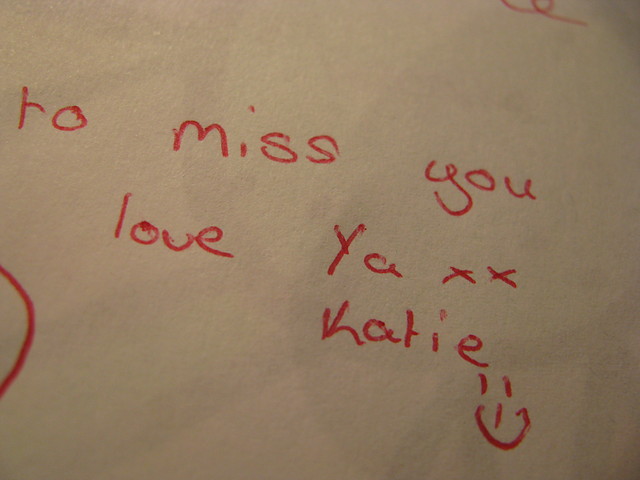 to miss you
love Ya xx
Katie